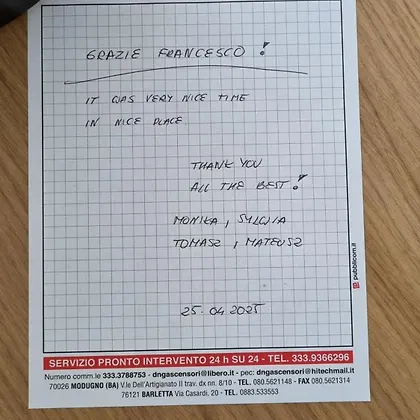 GRAZIE FRANCESCO!
IT WAS VERY NICE TIME
IN NICE PLACE
THANK YOU
ALL THE BEST!
MONIKA, SYLWIA
TOMASZ, MATEUSZ
25.04.2025
pubblicom.it
SERVIZIO PRONTO INTERVENTO 24 h SU 24 - TEL. 333.9366296
Numero comm.le 333.3788753 - dngascensori@libero.it - pec: dngascensori@hitechmail.it
70026 MODUGNO (BA) V.le Dell'Artigianato II trav. dx nn. 8/10 - TEL. 080.5621148 - FAX 080.5621314
76121 BARLETTA Via Casardi, 20 - TEL. 0883.533553